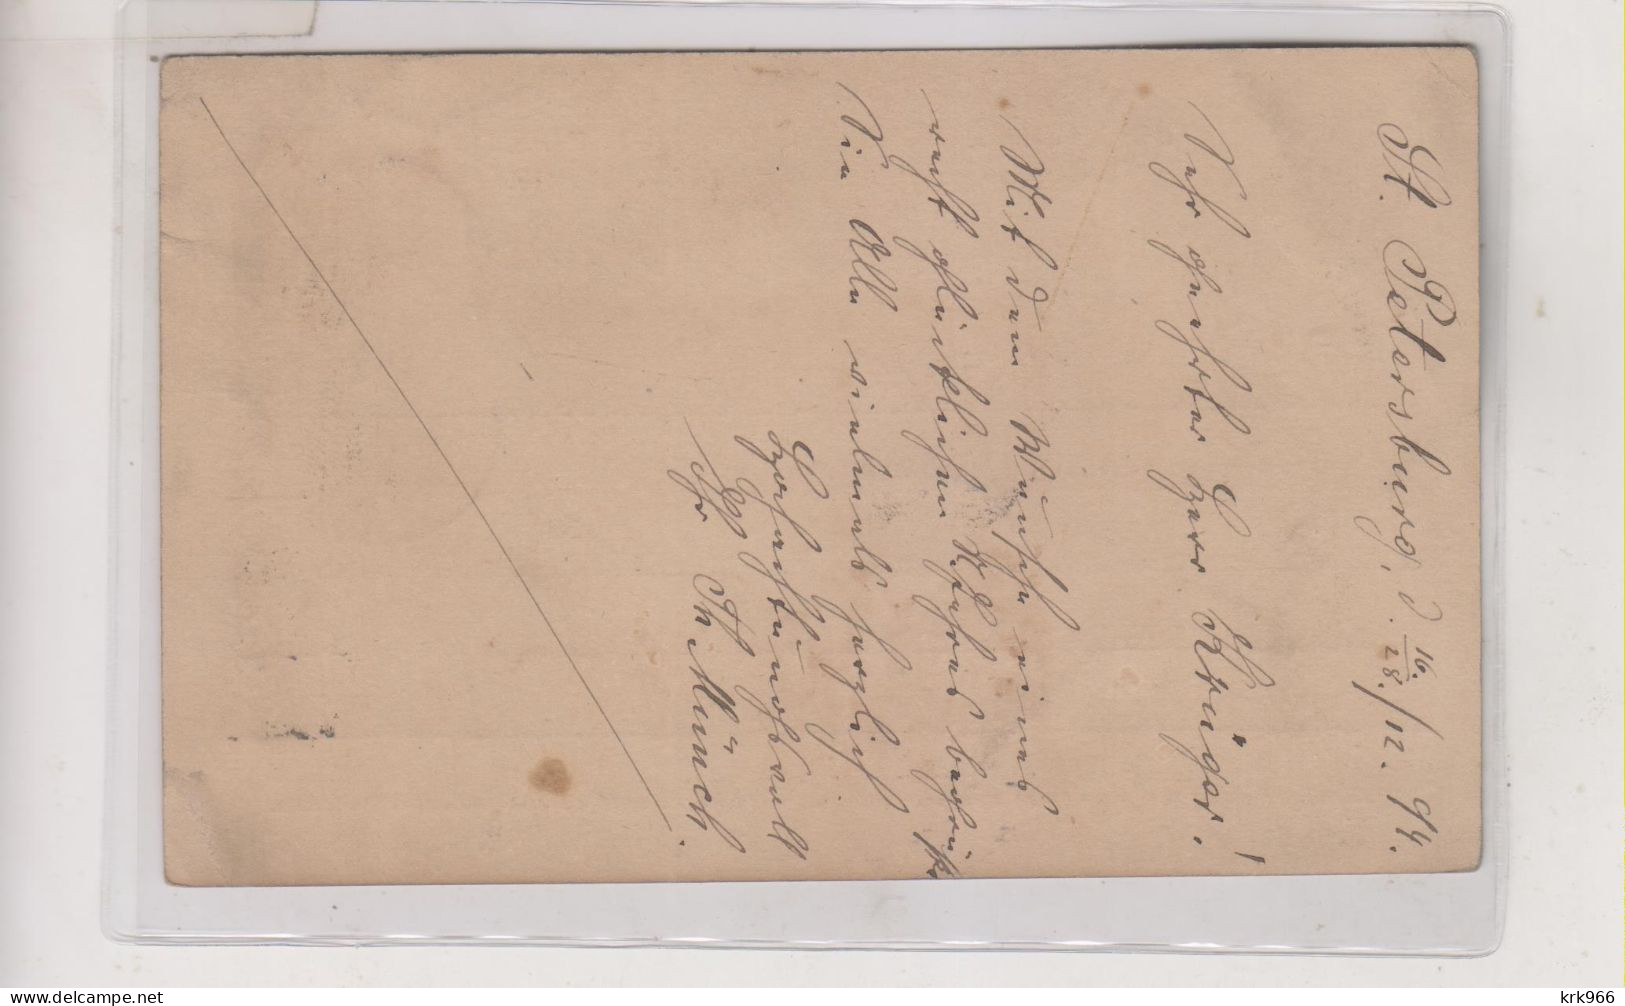 St. Petersburg, d. 16./28./12. 94.
Sehr geehrter Herr Krüger!
Mit dem Wunsche eines
recht glücklichen Jahres begrüßt
Sie Alle vielmals herzlich
Hochachtungsvoll
Ihr Th. Münch.
krk966